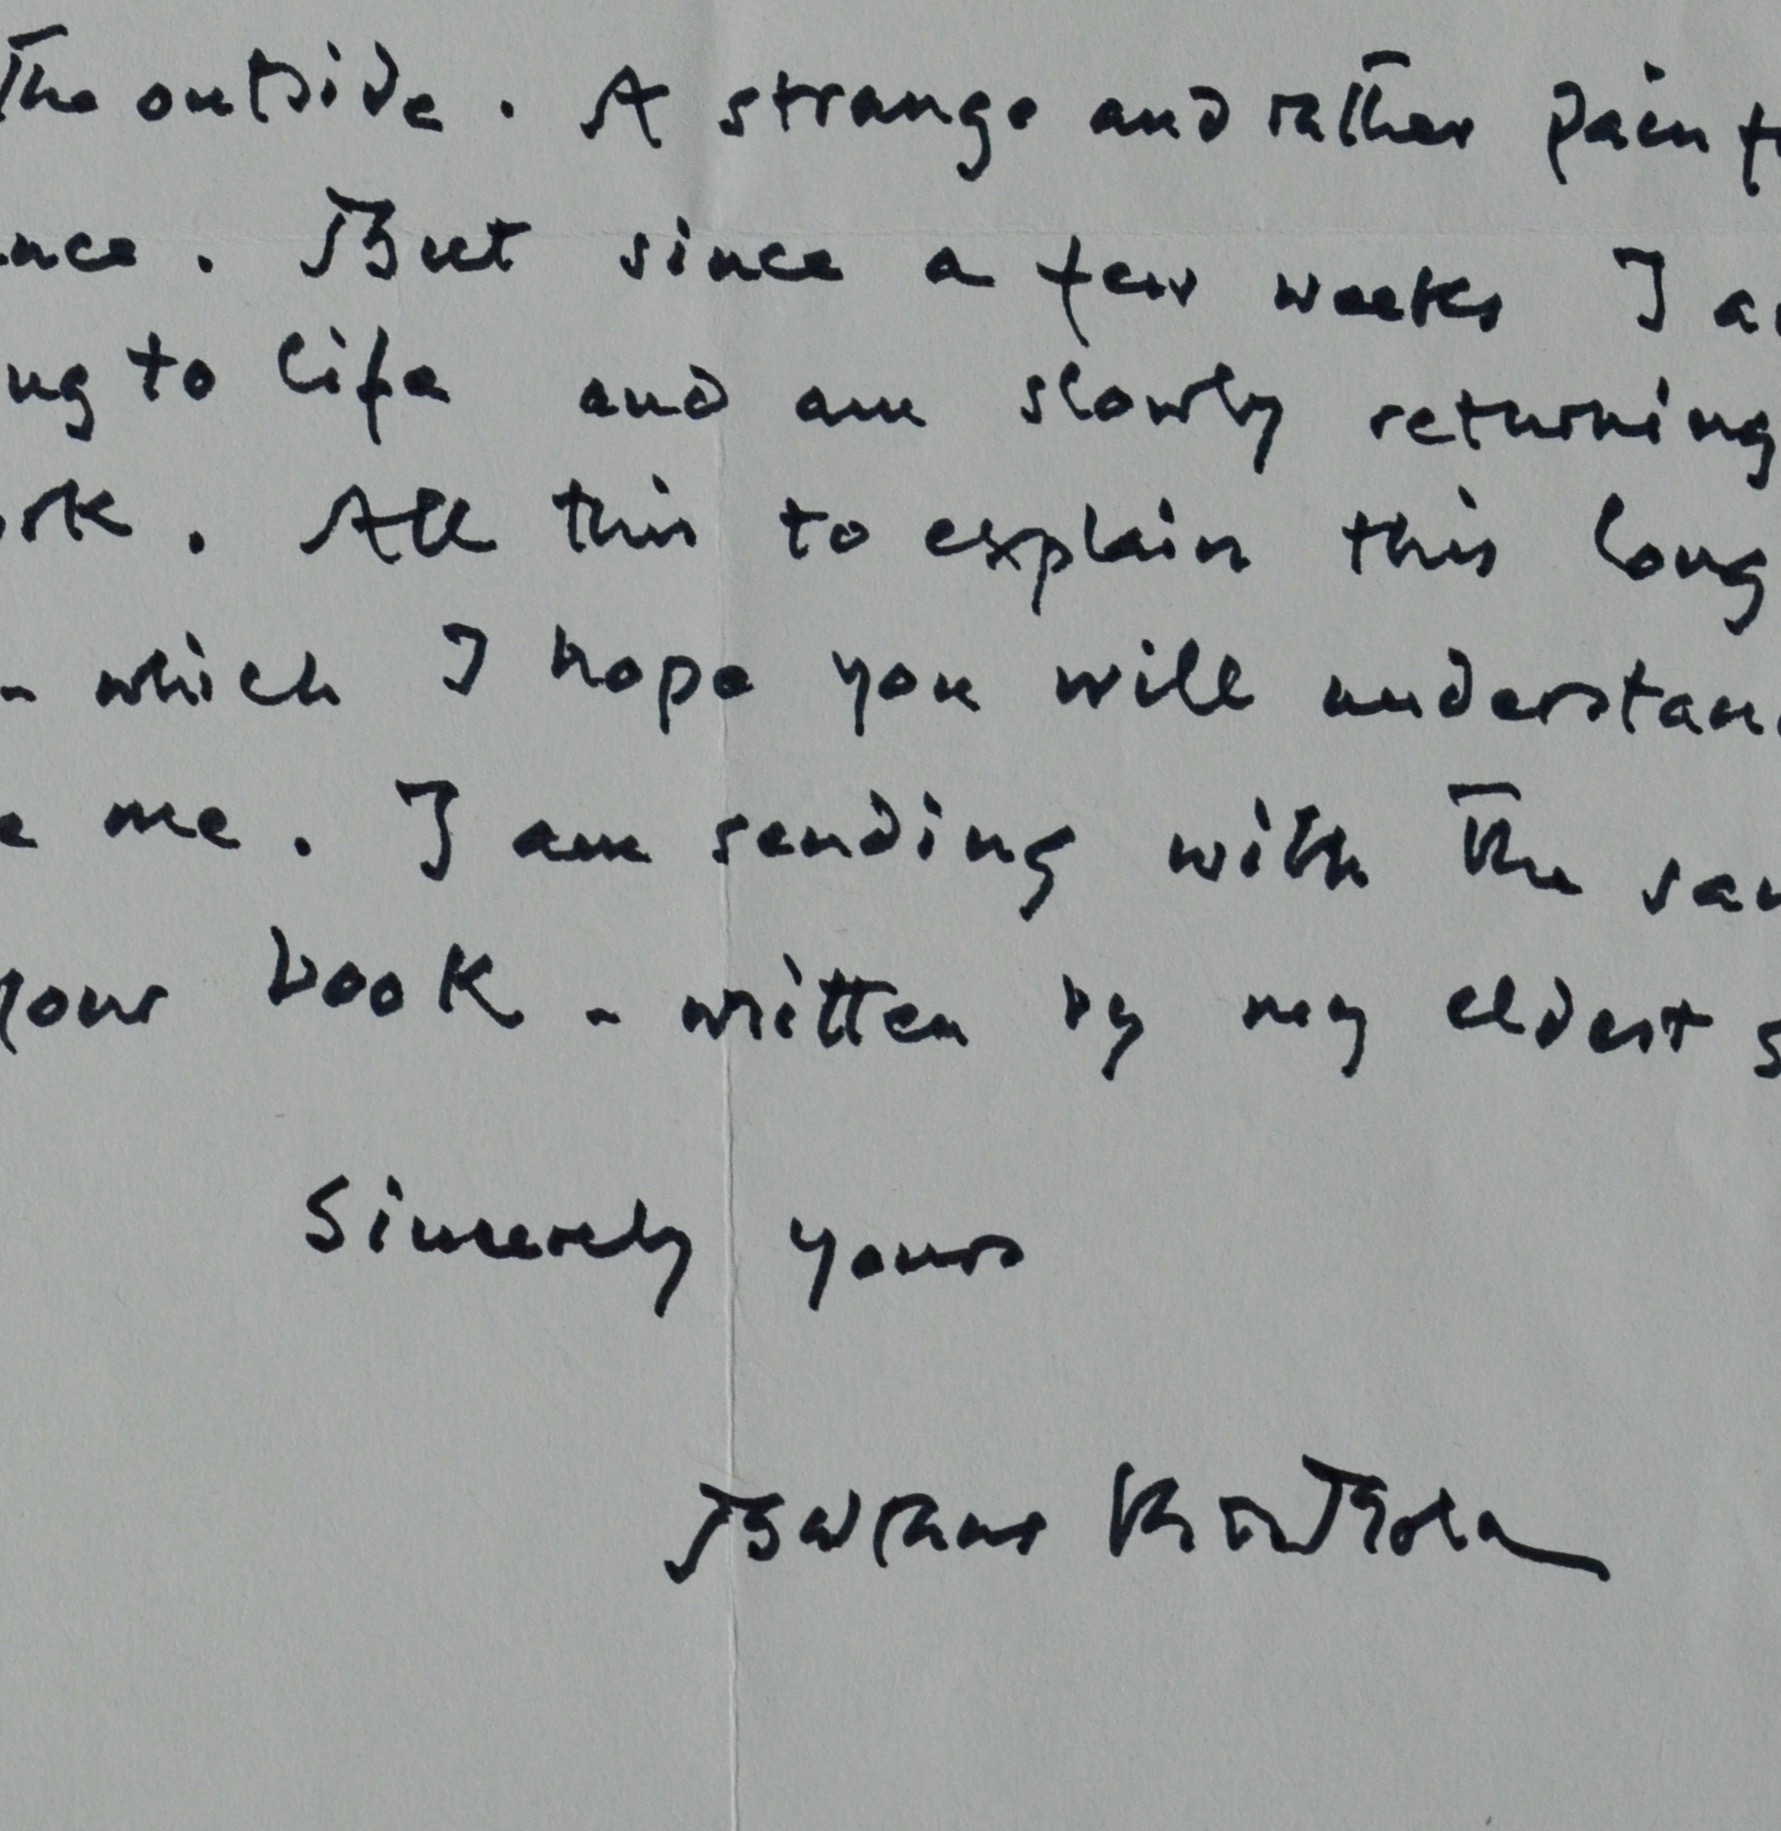 The outside. A strange and rather pain
. But since a few weeks I
to life and am slowly returning
. All this to explain this long
- which I hope you will
me. I am sending with the
your book - written by my eldest
Sincerely yours
Balthus